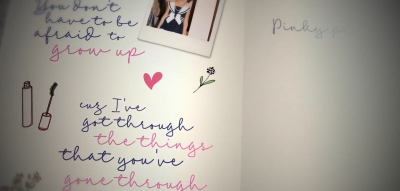 You don't
have to be
afraid to
grow up
'cuz I've
got through
the things
that you've
gone through
Pinky